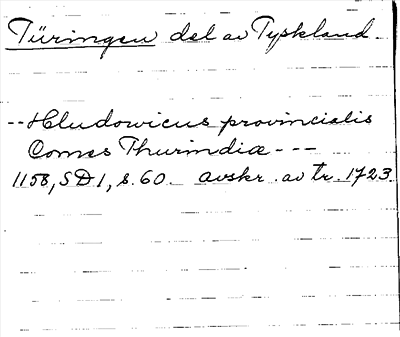 Türingen del av Tyskland.
-- Hludowicus provincialis
Comes Thurindiæ - - -
1158, SD1, s. 60. avskr. av tr. 1723.